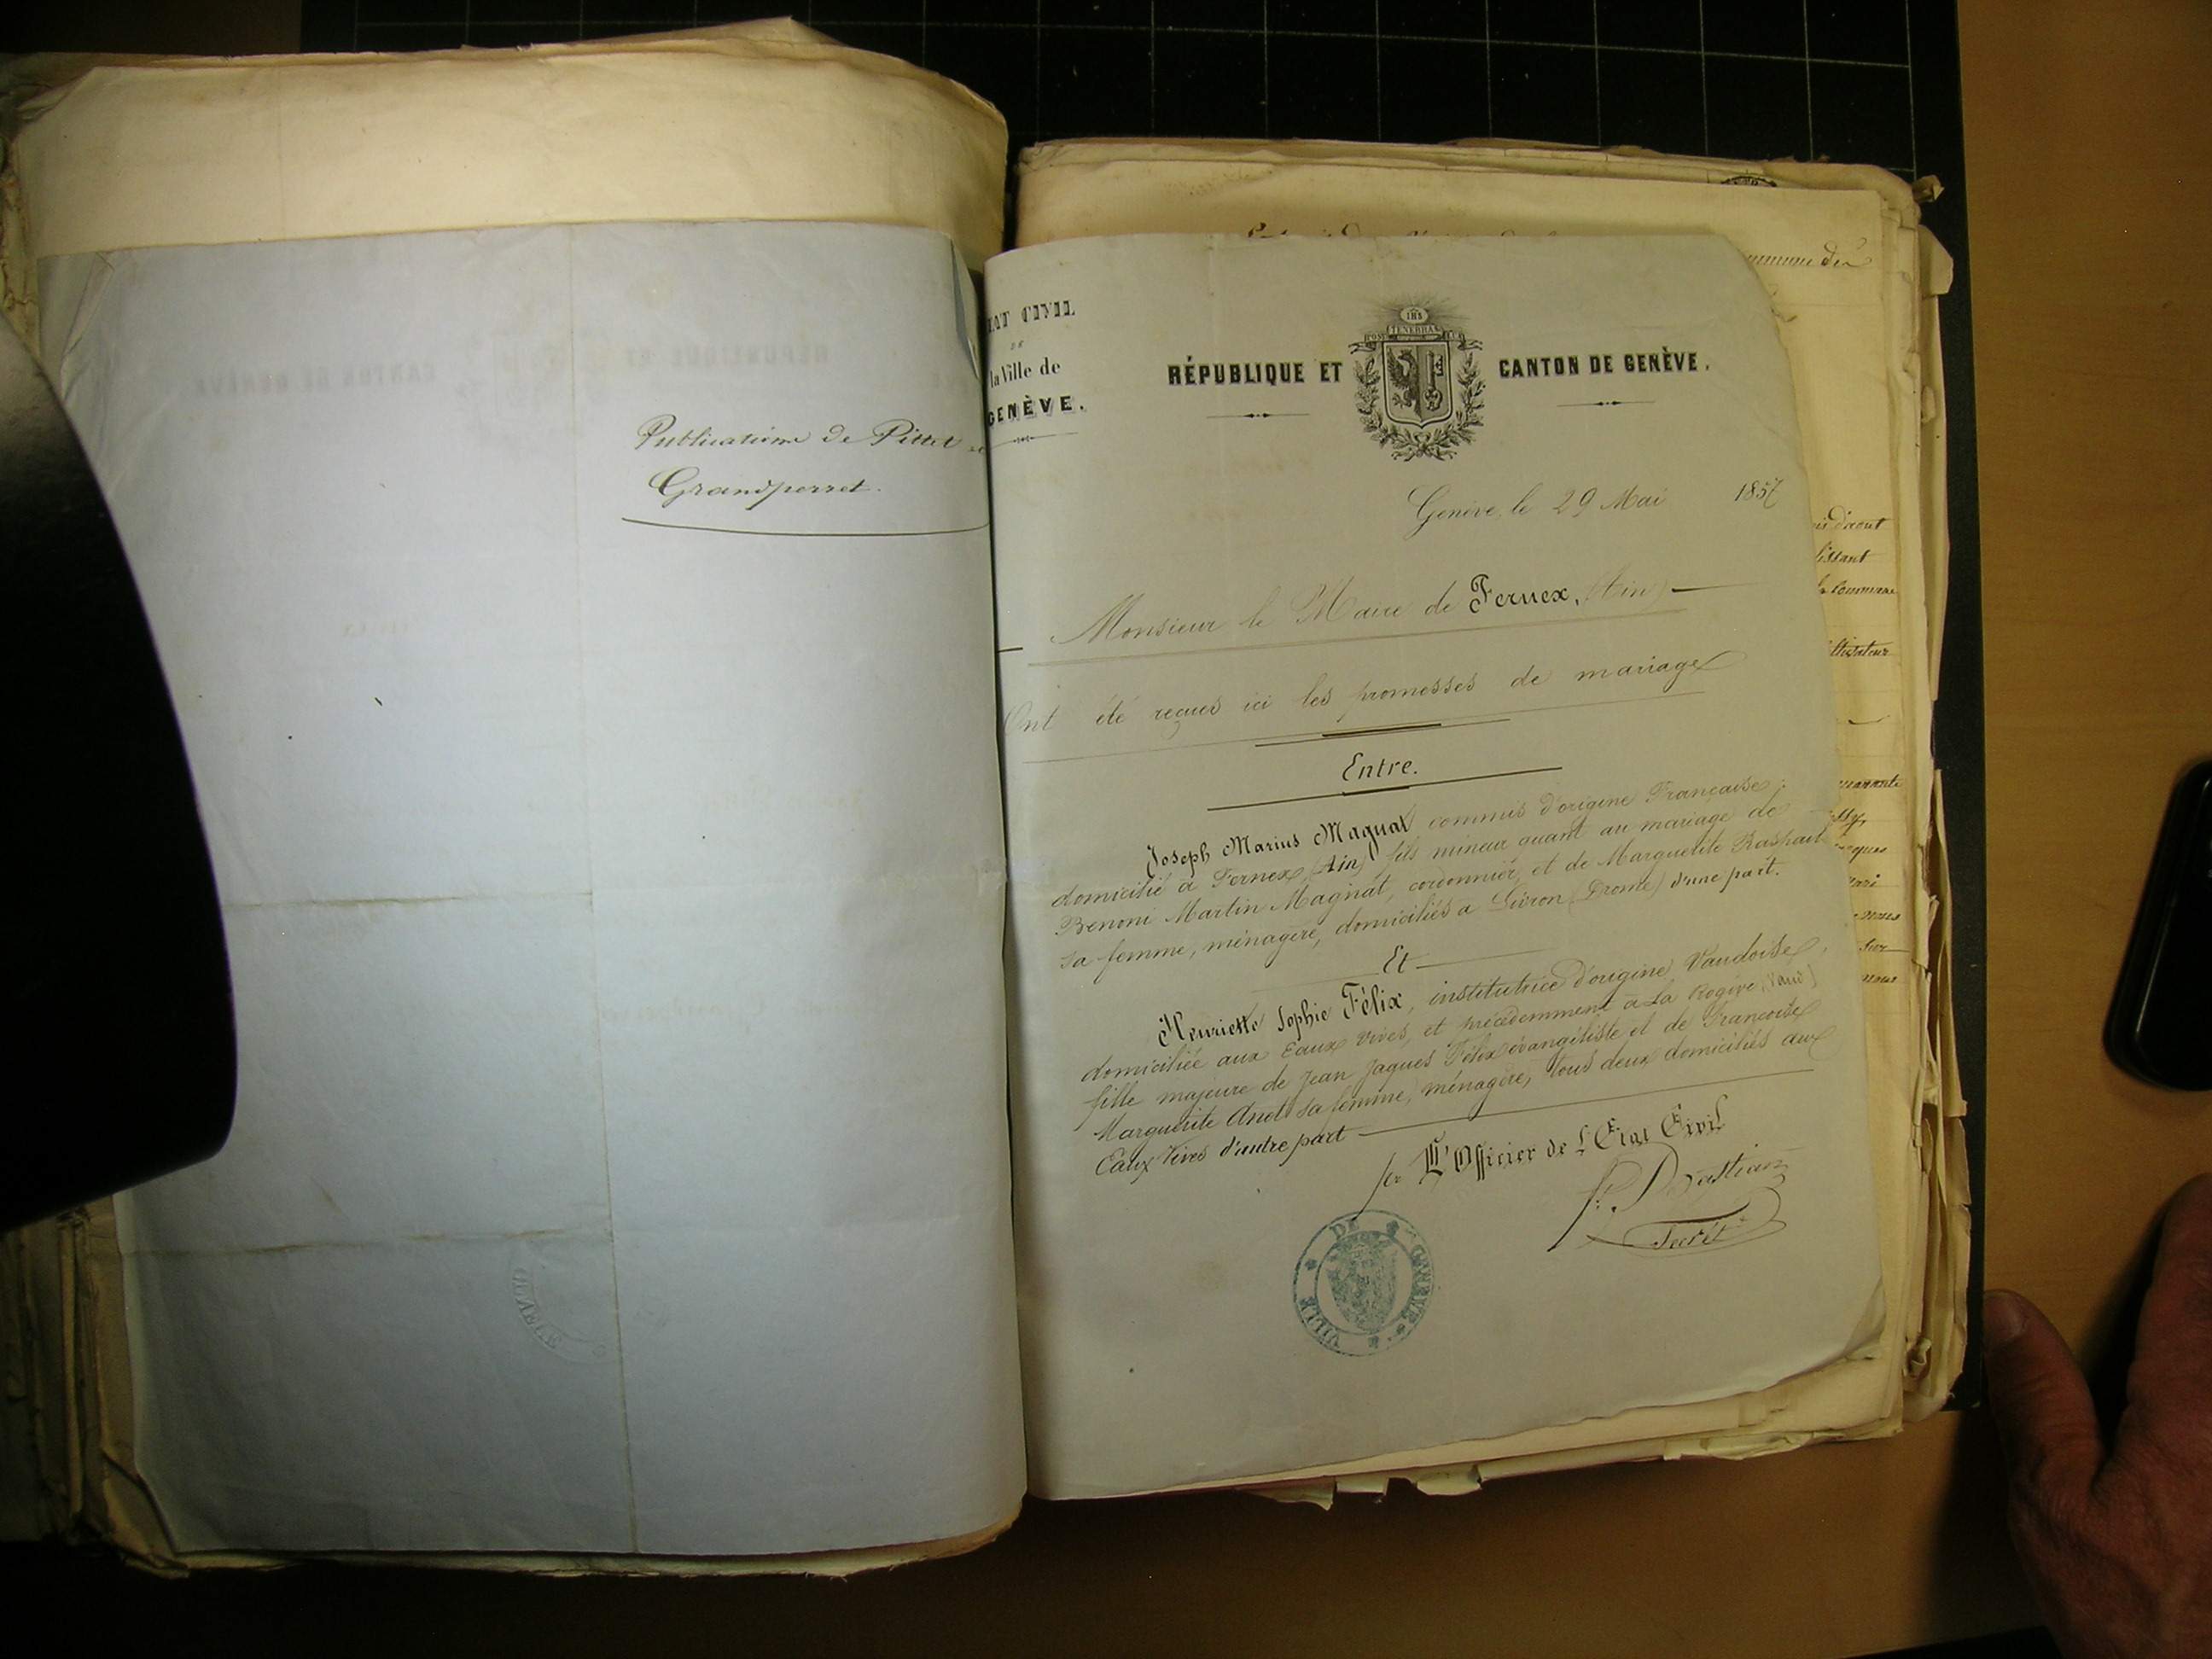 Publications de Pittet et
Grandperret.
ÉTAT CIVIL
DE
la Ville de
GENÈVE.
RÉPUBLIQUE ET CANTON DE GENÈVE.
POST TENEBRAS LUX
Genève, le 29 Mai 1857
Monsieur le Maire de Fernex, (Ain)
Ont été reçues ici les promesses de mariage
Entre.
Joseph Marius Magnat commis d'origine Française,
domicilié à Fernex (Ain) fils mineur quant au mariage de
Benoni Martin Magnat, cordonnier, et de Marguerite
sa femme, ménagère, domiciliés a Livron (Drome) d'une part.
Et
Henriette Sophie Félix, institutrice d'origine Vaudoise,
domiciliée aux Eaux Vives, et précédemment à La Rogive, (Vaud)
fille majeure de Jean Jaques Félix évangéliste et de Françoise
Marguerite sa femme, ménagère, tous deux domiciliés aux
Eaux Vives d'autre part
pr L'Officier de l'Etat Civil
Bastian
Secrét.
VILLE DE GENÈVE
commune de
d'aout
la commune
cultivateur
quarante
nous